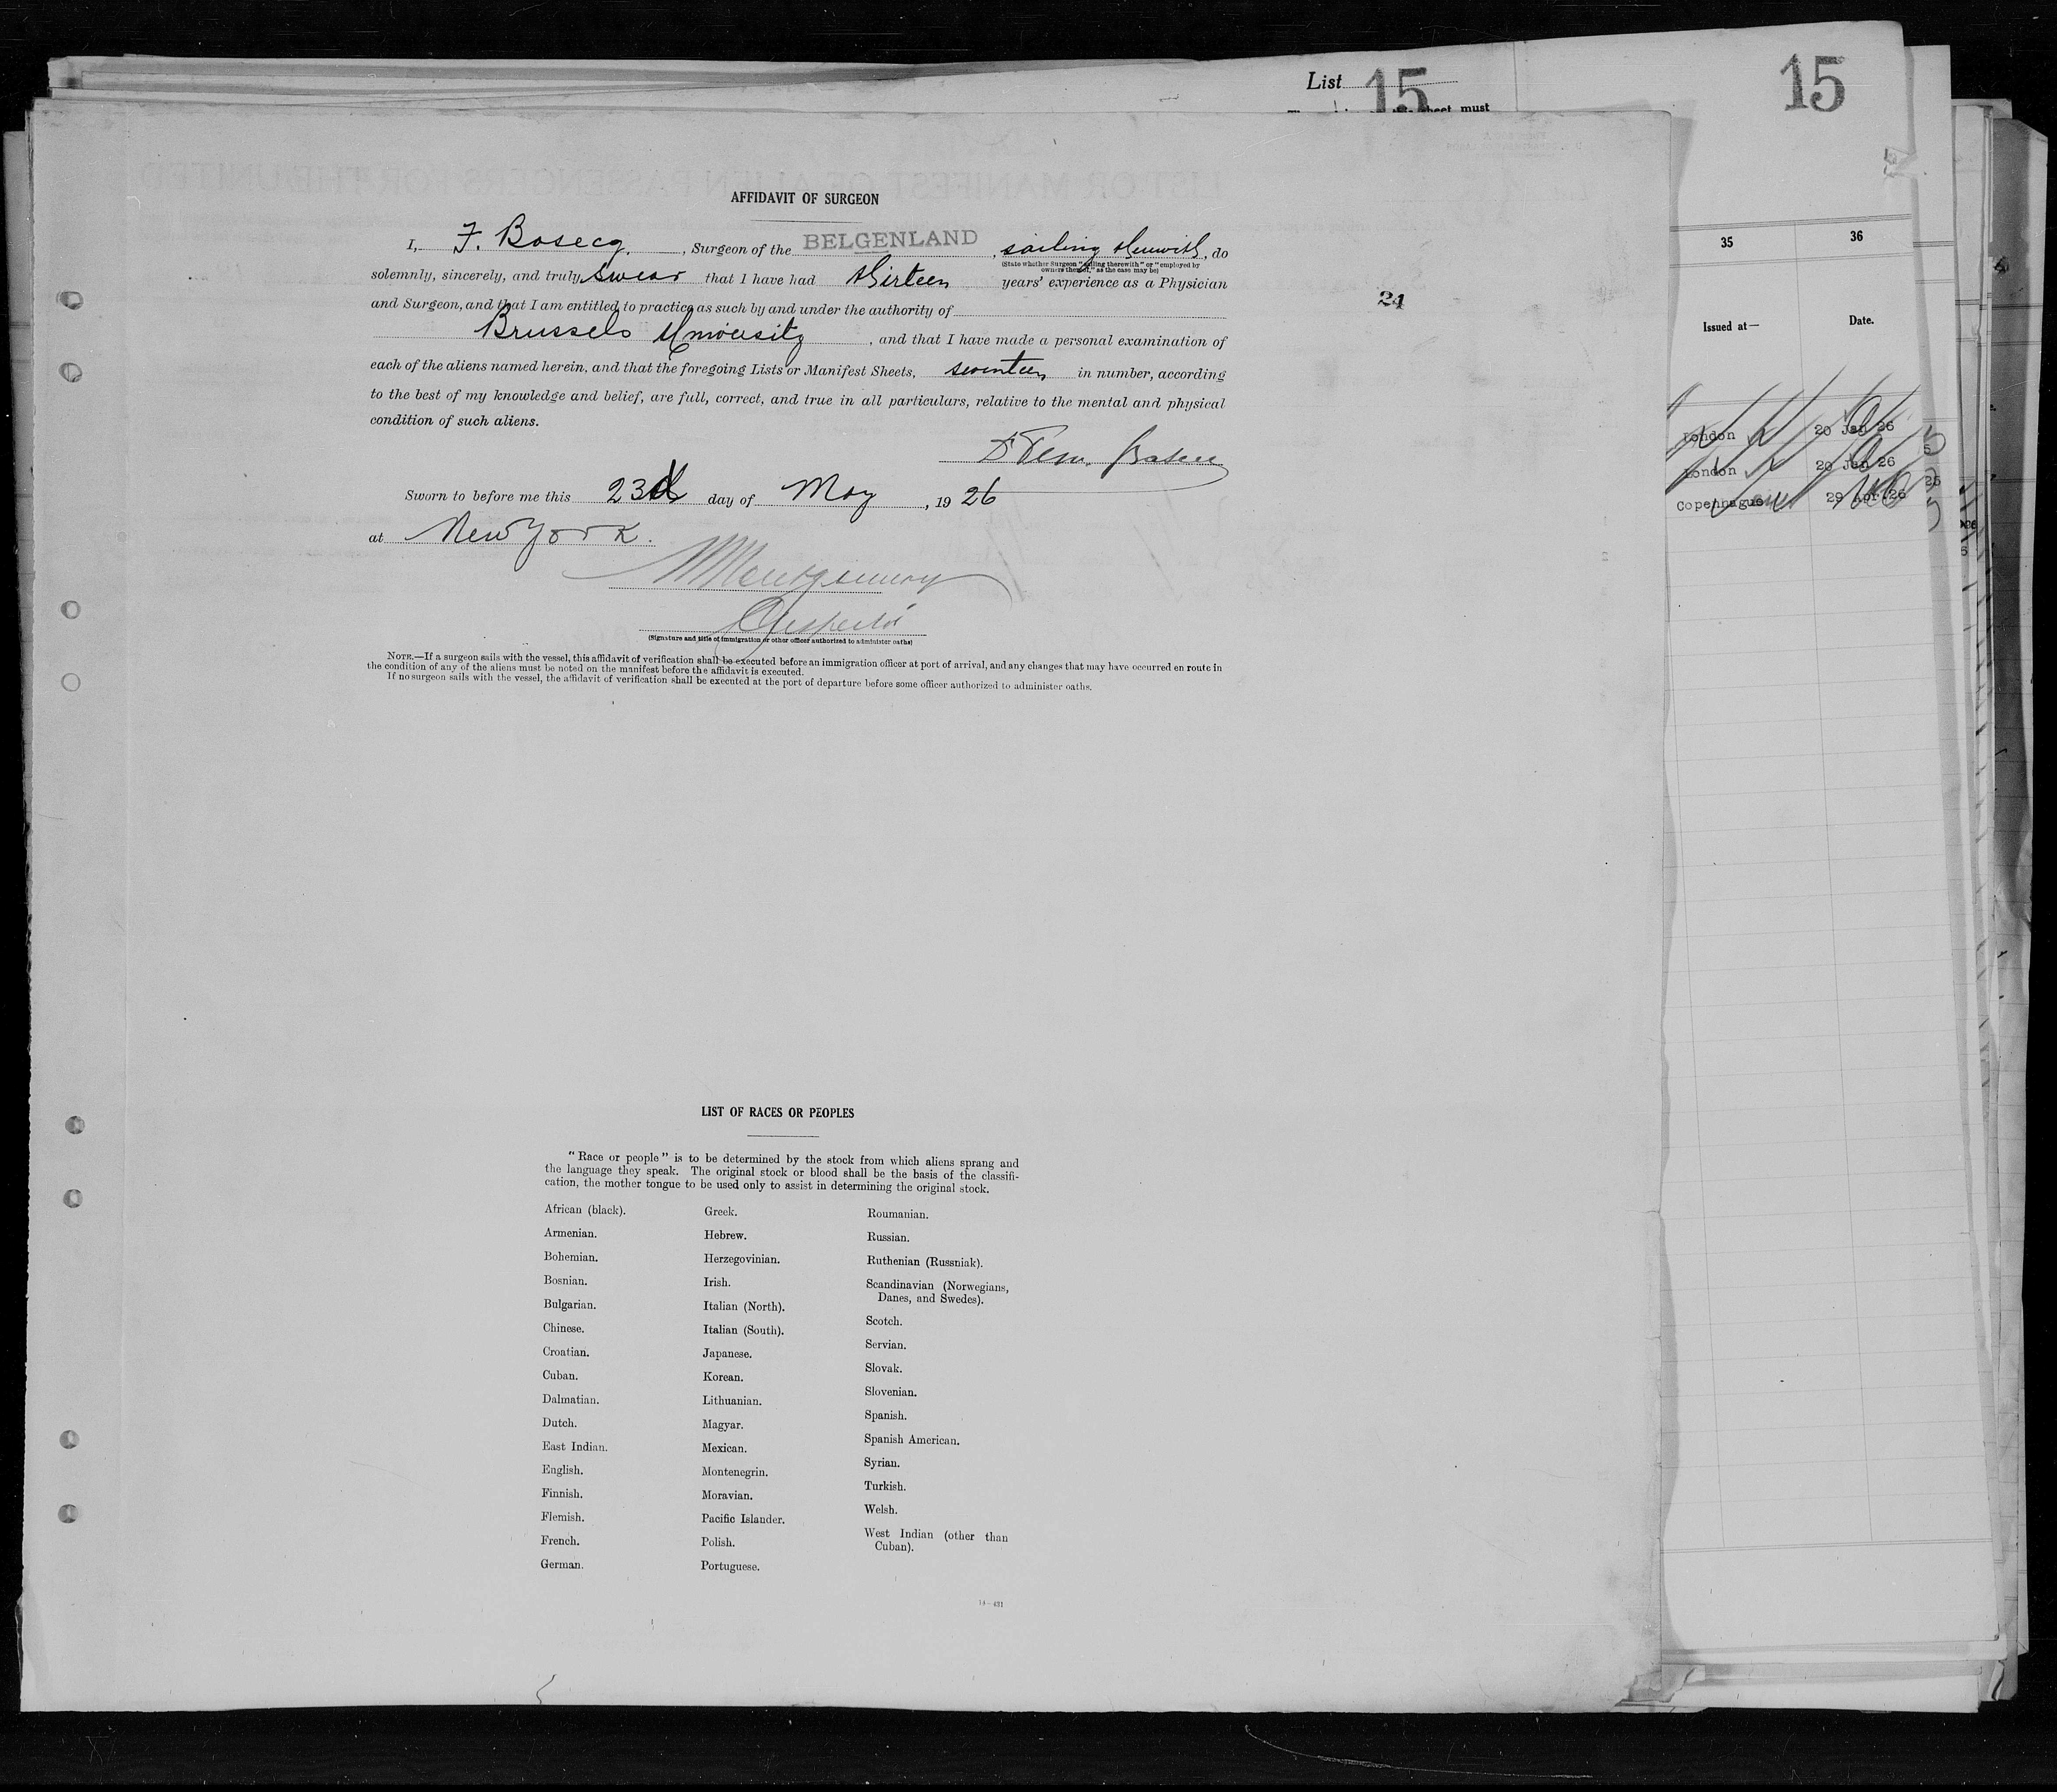 List 15
15
sheet must
AFFIDAVIT OF SURGEON
I, F. Bosecq, Surgeon of the BELGENLAND, sailing therewith, do
(State whether Surgeon "sailing therewith" or "employed by
owners thereof," as the case may be)
solemnly, sincerely, and truly swear that I have had thirteen years' experience as a Physician
and Surgeon, and that I am entitled to practice as such by and under the authority of
Brussels University, and that I have made a personal examination of
each of the aliens named herein, and that the foregoing Lists or Manifest Sheets, seventeen in number, according
to the best of my knowledge and belief, are full, correct, and true in all particulars, relative to the mental and physical
condition of such aliens.
Sworn to before me this 23d day of May, 1926
at New York.
Montgomery
Inspector
(Signature and title of immigration or other officer authorized to administer oaths)
NOTE.—If a surgeon sails with the vessel, this affidavit of verification shall be executed before an immigration officer at port of arrival, and any changes that may have occurred en route in
the condition of any of the aliens must be noted on the manifest before the affidavit is executed.
If no surgeon sails with the vessel, the affidavit of verification shall be executed at the port of departure before some officer authorized to administer oaths.
24
35 36
Issued at— Date.
London 20 Jan 26
London 20 Jan 26
Copenhague 29 Apr 26
LIST OF RACES OR PEOPLES
"Race or people" is to be determined by the stock from which aliens sprang and
the language they speak. The original stock or blood shall be the basis of the classifi-
cation, the mother tongue to be used only to assist in determining the original stock.
African (black).
Armenian.
Bohemian.
Bosnian.
Bulgarian.
Chinese.
Croatian.
Cuban.
Dalmatian.
Dutch.
East Indian.
English.
Finnish.
Flemish.
French.
German.
Greek.
Hebrew.
Herzegovinian.
Irish.
Italian (North).
Italian (South).
Japanese.
Korean.
Lithuanian.
Magyar.
Mexican.
Montenegrin.
Moravian.
Pacific Islander.
Polish.
Portuguese.
Roumanian.
Russian.
Ruthenian (Russniak).
Scandinavian (Norwegians,
Danes, and Swedes).
Scotch.
Servian.
Slovak.
Slovenian.
Spanish.
Spanish American.
Syrian.
Turkish.
Welsh.
West Indian (other than
Cuban).